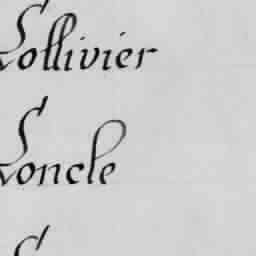 Lollivier
Loncle